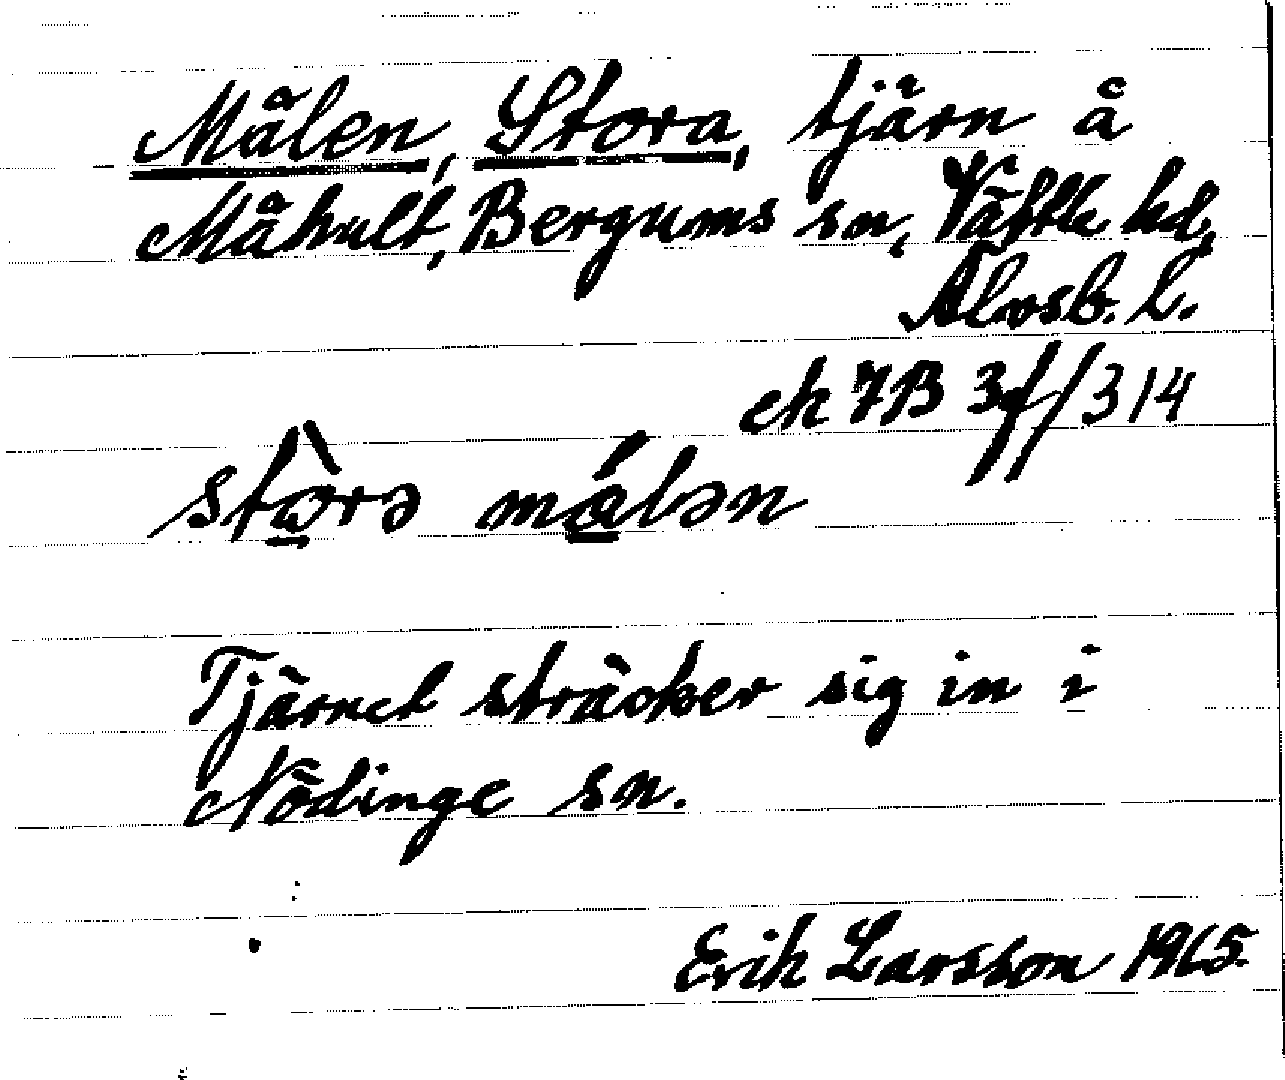 Målen, Stora, tjärn å
Måhult, Bergums sn, Vättle hd,
Älvsb. l.
ek 7B 3f/314
stòrə målən
Tjärnet sträcker sig in i
Nödinge sn.
Erik Larsson 1965.